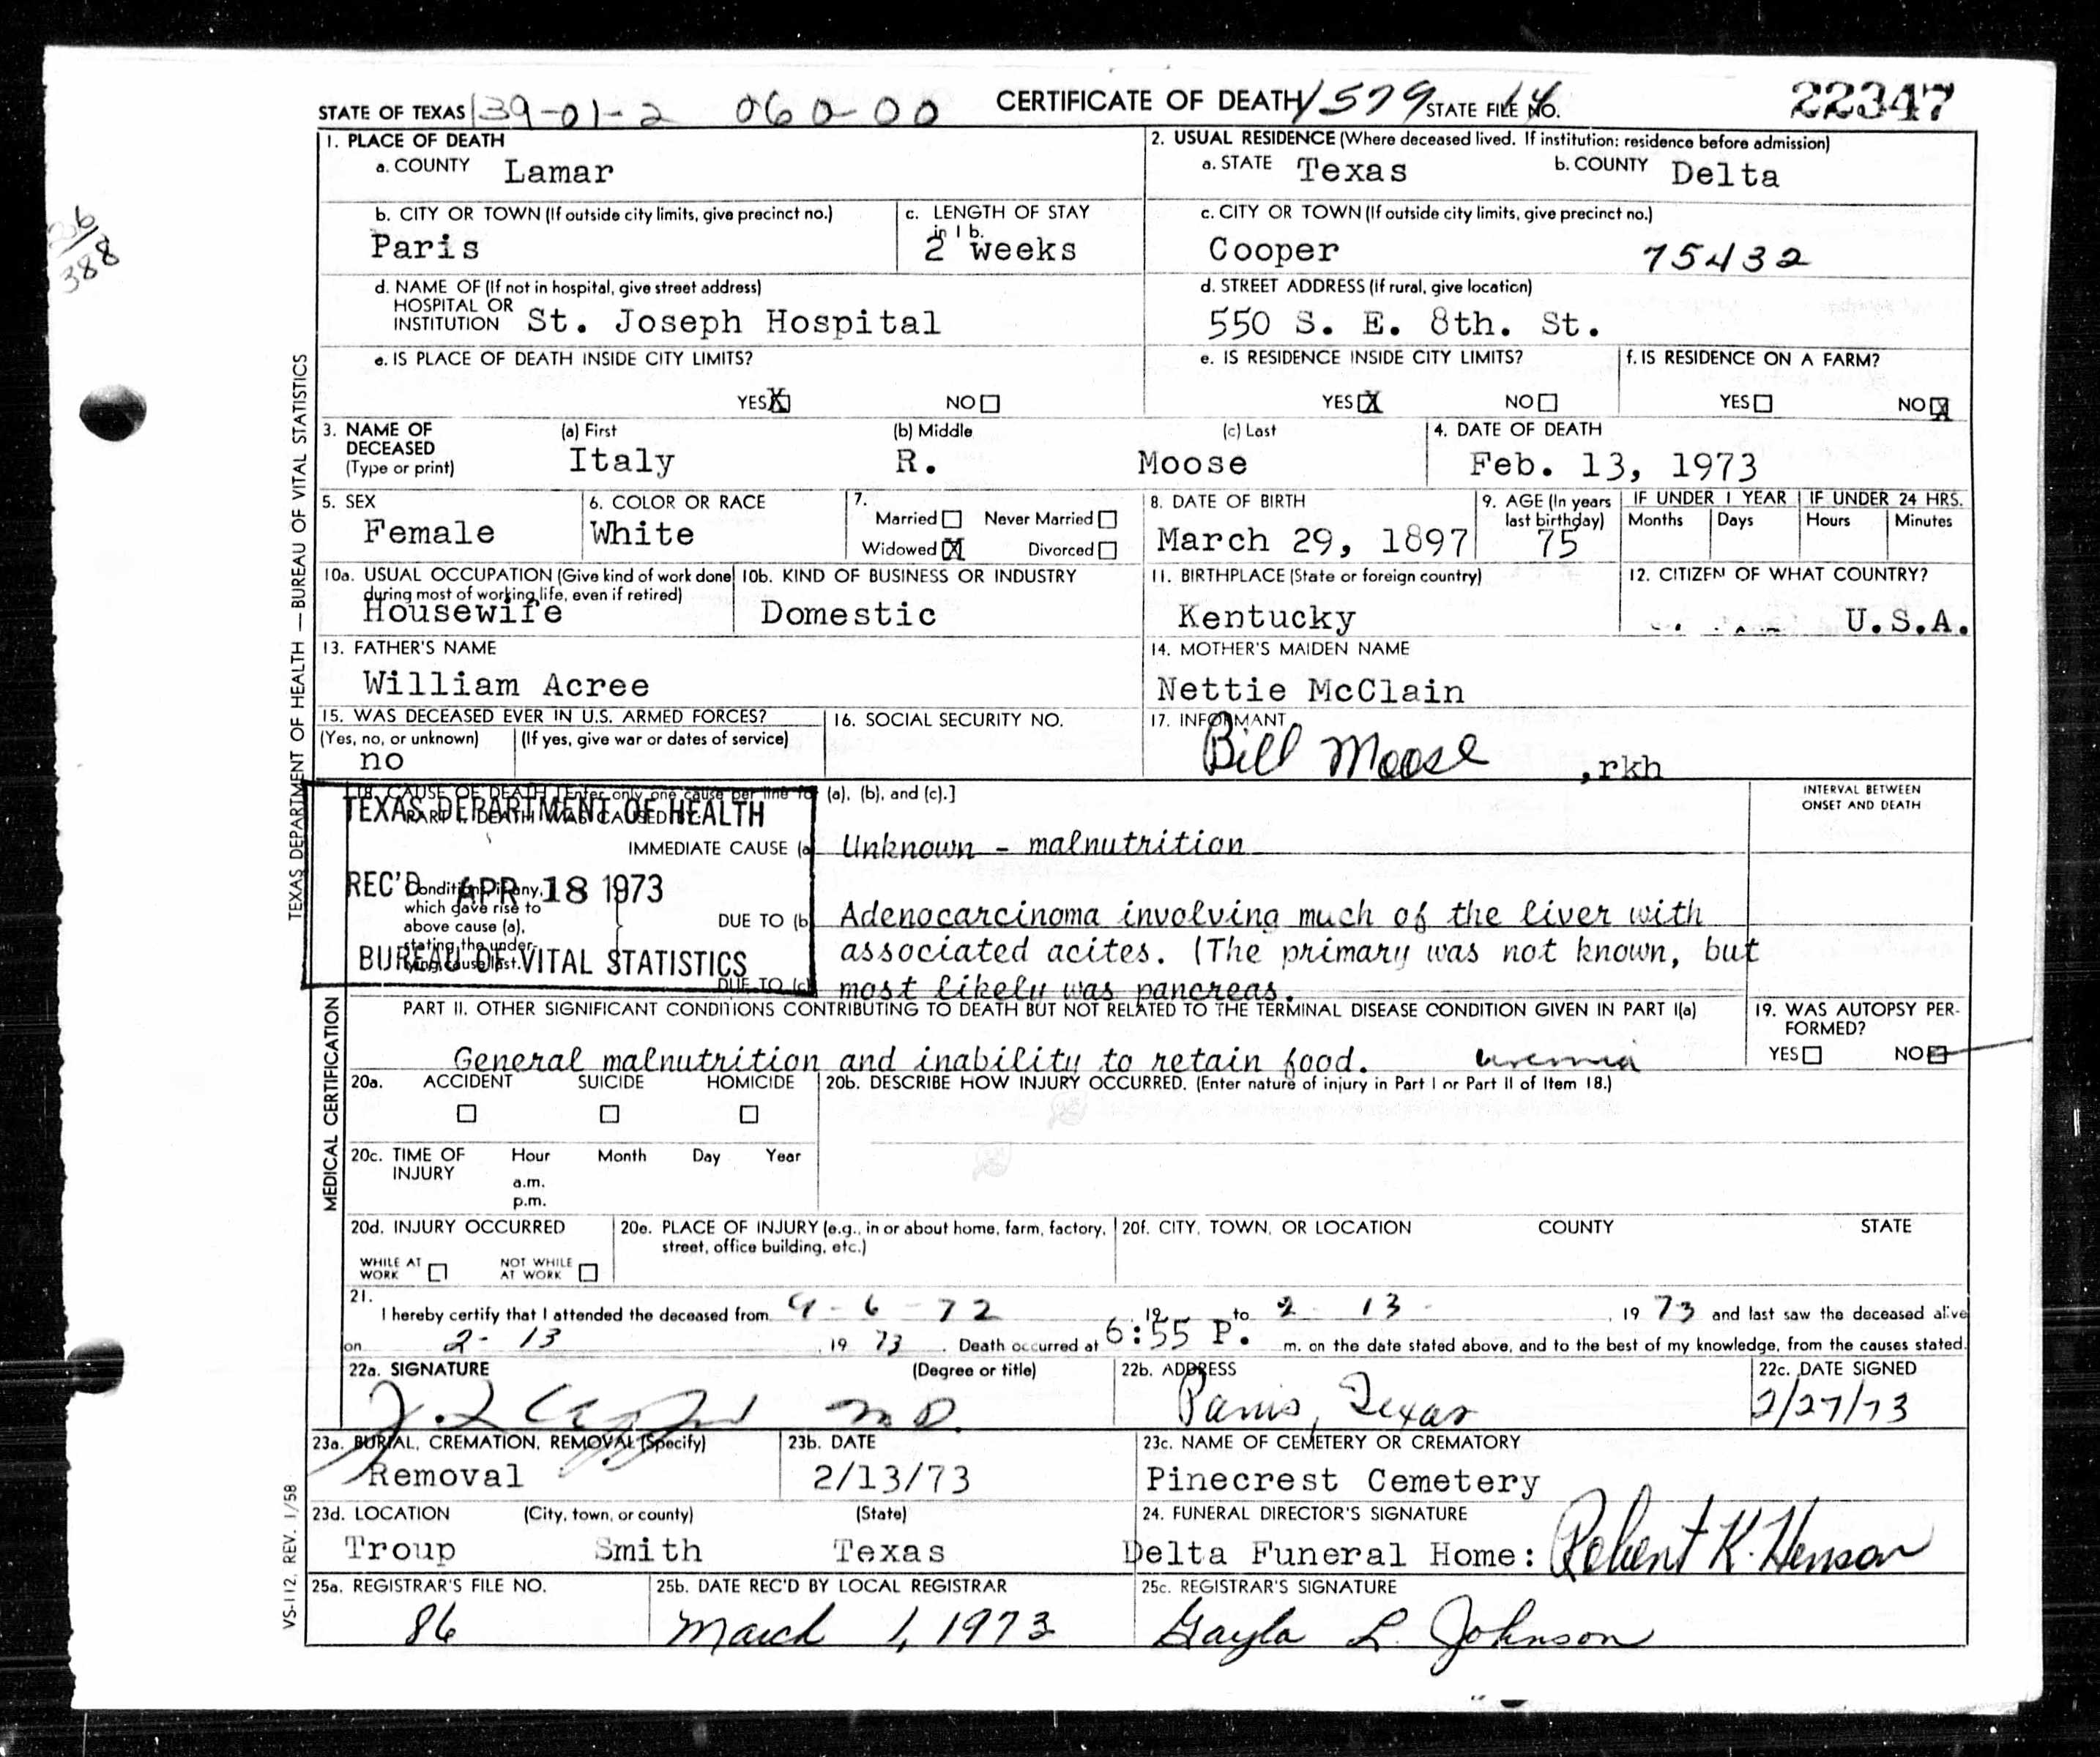 STATE OF TEXAS 139-01-2 060-00 CERTIFICATE OF DEATH 1579 STATE FILE NO. 14 22347
1. PLACE OF DEATH
a. COUNTY Lamar
2. USUAL RESIDENCE (Where deceased lived. If institution: residence before admission)
a. STATE Texas b. COUNTY Delta
b. CITY OR TOWN (If outside city limits, give precinct no.)
Paris
c. LENGTH OF STAY
in 1 b.
2 weeks
c. CITY OR TOWN (If outside city limits, give precinct no.)
Cooper 75432
d. NAME OF (If not in hospital, give street address)
HOSPITAL OR
INSTITUTION St. Joseph Hospital
d. STREET ADDRESS (If rural, give location)
550 S. E. 8th. St.
e. IS PLACE OF DEATH INSIDE CITY LIMITS?
YES X NO
e. IS RESIDENCE INSIDE CITY LIMITS?
YES X NO
f. IS RESIDENCE ON A FARM?
YES NO X
3. NAME OF
DECEASED
(Type or print)
(a) First (b) Middle (c) Last
Italy R. Moose
4. DATE OF DEATH
Feb. 13, 1973
5. SEX
Female
6. COLOR OR RACE
White
7.
Married Never Married
Widowed X Divorced
8. DATE OF BIRTH
March 29, 1897
9. AGE (In years
last birthday)
75
IF UNDER 1 YEAR IF UNDER 24 HRS.
Months Days Hours Minutes
10a. USUAL OCCUPATION (Give kind of work done
during most of working life, even if retired)
Housewife
10b. KIND OF BUSINESS OR INDUSTRY
Domestic
11. BIRTHPLACE (State or foreign country)
Kentucky
12. CITIZEN OF WHAT COUNTRY?
U.S.A.
13. FATHER'S NAME
William Acree
14. MOTHER'S MAIDEN NAME
Nettie McClain
15. WAS DECEASED EVER IN U.S. ARMED FORCES?
(Yes, no, or unknown) (If yes, give war or dates of service)
no
16. SOCIAL SECURITY NO.
17. INFORMANT
Bill Moose ,rkh
18. CAUSE OF DEATH [Enter only one cause per line for (a), (b), and (c).]
PART I. DEATH WAS CAUSED BY:
INTERVAL BETWEEN
ONSET AND DEATH
TEXAS DEPARTMENT OF HEALTH
REC'D APR 18 1973
BUREAU OF VITAL STATISTICS
IMMEDIATE CAUSE (a) Unknown - malnutrition
Conditions, if any,
which gave rise to
above cause (a),
stating the under-
lying cause last.
DUE TO (b) Adenocarcinoma involving much of the liver with
associated acites. (The primary was not known, but
DUE TO (c) most likely was pancreas.
PART II. OTHER SIGNIFICANT CONDITIONS CONTRIBUTING TO DEATH BUT NOT RELATED TO THE TERMINAL DISEASE CONDITION GIVEN IN PART I(a)
General malnutrition and inability to retain food. uremia
19. WAS AUTOPSY PER-
FORMED?
YES NO
20a. ACCIDENT SUICIDE HOMICIDE
20b. DESCRIBE HOW INJURY OCCURRED. (Enter nature of injury in Part I or Part II of Item 18.)
20c. TIME OF
INJURY
Hour Month Day Year
a.m.
p.m.
20d. INJURY OCCURRED
WHILE AT
WORK
NOT WHILE
AT WORK
20e. PLACE OF INJURY (e.g., in or about home, farm, factory,
street, office building, etc.)
20f. CITY, TOWN, OR LOCATION COUNTY STATE
21.
I hereby certify that I attended the deceased from 9-6-72 19 to 2-13- , 19 73 and last saw the deceased alive
on 2-13 , 19 73 . Death occurred at 6:55 P. m. on the date stated above, and to the best of my knowledge, from the causes stated.
22a. SIGNATURE (Degree or title)
M.D.
22b. ADDRESS
Paris, Texas
22c. DATE SIGNED
2/27/73
23a. BURIAL, CREMATION, REMOVAL (Specify)
Removal
23b. DATE
2/13/73
23c. NAME OF CEMETERY OR CREMATORY
Pinecrest Cemetery
23d. LOCATION (City, town, or county) (State)
Troup Smith Texas
24. FUNERAL DIRECTOR'S SIGNATURE
Delta Funeral Home: Robert K. Henson
25a. REGISTRAR'S FILE NO.
86
25b. DATE REC'D BY LOCAL REGISTRAR
March 1, 1973
25c. REGISTRAR'S SIGNATURE
Gayla L. Johnson
TEXAS DEPARTMENT OF HEALTH — BUREAU OF VITAL STATISTICS
MEDICAL CERTIFICATION
VS-112, REV. 1/58
36
388